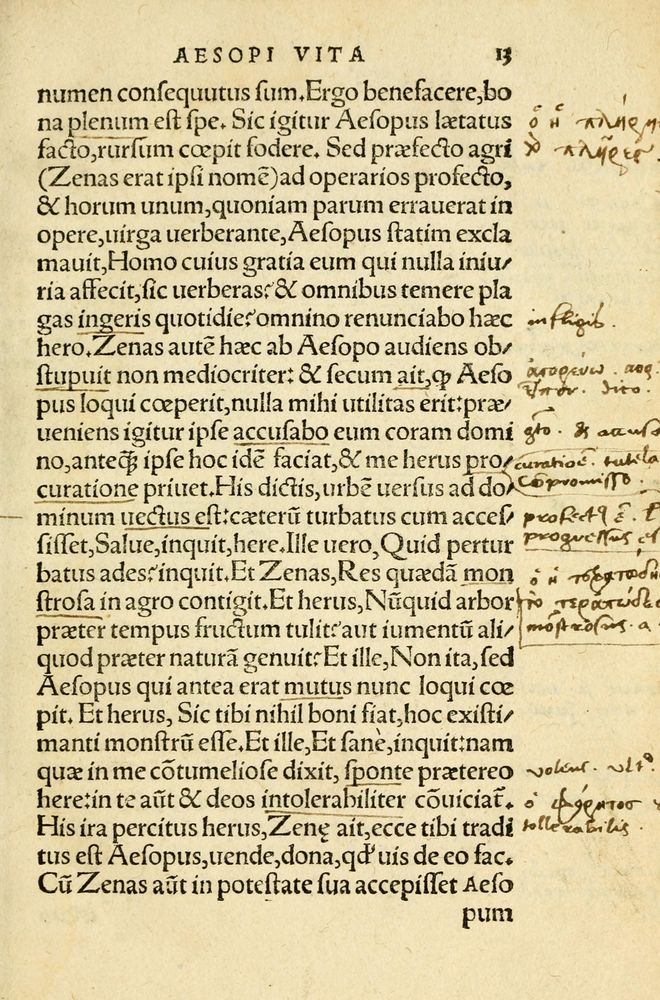 AESOPI VITA 13
numen consequutus ſum. Ergo benefacere, bo
na plenum eſt ſpe. Sic igitur Aeſopus lætatus
facto, rurſum cœpit fodere. Sed præfecto agri
(Zenas erat ipſi nomē) ad operarios profecto,
& horum unum, quoniam parum errauerat in
opere, uirga uerberante, Aeſopus ſtatim excla
mauit, Homo cuius gratia eum qui nulla iniu/
ria affecit, ſic uerberas? & omnibus temere pla
gas ingeris quotidie? omnino renunciabo hæc
hero. Zenas autē hæc ab Aeſopo audiens ob/
ſtupuit non mediocriter: & ſecum ait, ꝙ Aeſo
pus loqui cœperit, nulla mihi utilitas erit: præ/
ueniens igitur ipſe accuſabo eum coram domi
no, anteq̃ ipſe hoc idē faciat, & me herus pro/
curatione priuet. His dictis, urbē uerſus ad do/
minum uectus eſt: cæterū turbatus cum acceſ/
ſiſſet, Salue, inquit, here. Ille uero, Quid pertur
batus ades? inquit. Et Zenas, Res quædā mon
ſtroſa in agro contigit. Et herus, Nūquid arbor
præter tempus fructum tulit? aut iumentū ali/
quod præter naturā genuit? Et ille, Non ita, ſed
Aeſopus qui antea erat mutus nunc loqui cœ
pit. Et herus, Sic tibi nihil boni fiat, hoc exiſti/
manti monſtrū eſſe. Et ille, Et ſanè, inquit: nam
quæ in me cōtumelioſe dixit, ſponte prætereo
here: in te aūt & deos intolerabiliter cōuiciat̃.
His ira percitus herus, Zenę ait, ecce tibi tradi
tus eſt Aeſopus, uende, dona, qđ uis de eo fac.
Cū Zenas aūt in poteſtate ſua accepiſſet Aeſo
pum
infligis.
procuratiōe. tutela
cōpromiſſo.
profectꝰ ē.
progreſſus eſ
ὁ ἡ
τὸ
mōſtroſus. a
volens. ultº.
ὁ
tollerabilis.